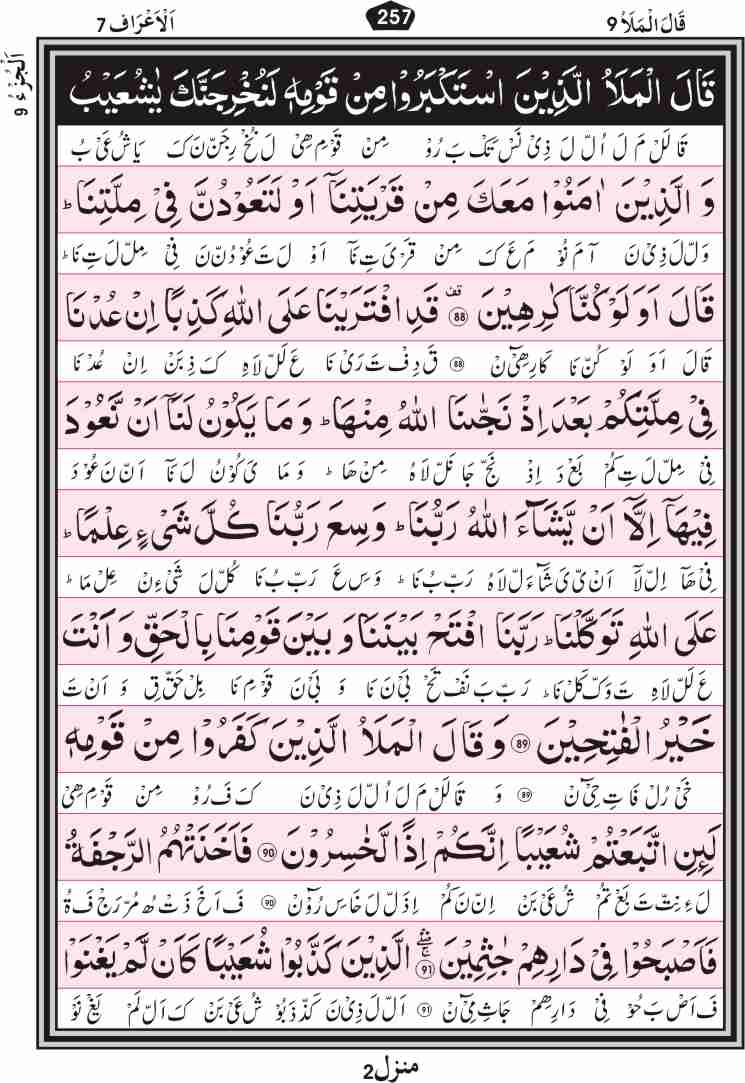 قَالَ الْمَلَاُ 9
257
اَلْاَعْرَاف 7
اَلْجُزْءُ 9
قَالَ الْمَلَاُ الَّذِيْنَ اسْتَكْبَرُوْا مِنْ قَوْمِهٖ لَنُخْرِجَنَّكَ يٰشُعَيْبُ
قَا لَلْ مَ لَ اُلْ لَ ذِىْ نَسْ تَكْ بَ رُوْ مِنْ قَوْ مِ هِىْ لَ نُخْ رِ جَنْ نَ كَ يَا شُ عَىْ بُ
وَ الَّذِيْنَ اٰمَنُوْا مَعَكَ مِنْ قَرْيَتِنَاۤ اَوْ لَتَعُوْدُنَّ فِىْ مِلَّتِنَا ؕ
وَلْ لَ ذِىْ نَ اٰ مَ نُوْ مَ عَ كَ مِنْ قَرْ ىَ تِ نَاۤ اَوْ لَ تَ عُوْ دُنْ نَ فِىْ مِلْ لَ تِ نَا ؕ
قَالَ اَوَلَوْ كُنَّا كٰرِهِيْنَ ۟ قف 88 قَدِ افْتَرَيْنَا عَلَى اللّٰهِ كَذِبًا اِنْ عُدْنَا
قَالَ اَوَ لَوْ كُنْ نَا كَارِهِىْٓ نْ 88 قَ دِفْ تَ رَىْ نَا عَ لَلْ لَاهِ كَ ذِ بَنْ اِنْ عُدْ نَا
فِىْ مِلَّتِكُمْ بَعْدَ اِذْ نَجّٰىنَا اللّٰهُ مِنْهَا ؕ وَ مَا يَكُوْنُ لَنَاۤ اَنْ نَّعُوْدَ
فِىْ مِلْ لَ تِ كُمْ بَعْ دَ اِذْ نَجْ جَا نَلْ لَاهُ مِنْ هَا ؕ وَ مَا ىَ كُوْنُ لَ نَاۤ اَنْ نَ عُوْدَ
فِيْهَاۤ اِلَّاۤ اَنْ يَّشَآءَ اللّٰهُ رَبُّنَا ؕ وَسِعَ رَبُّنَا كُلَّ شَىْءٍ عِلْمًا ؕ
فِىْ هَاۤ اِلْ لَاۤ اَنْ ىْ ىَ شَآءَ لْ لَاهُ رَبْ بُ نَا ؕ وَ سِ عَ رَبْ بُ نَا كُلْ لَ شَىْ ءِنْ عِلْ مَا ؕ
عَلَى اللّٰهِ تَوَكَّلْنَا ؕ رَبَّنَا افْتَحْ بَيْنَنَا وَ بَيْنَ قَوْمِنَا بِالْحَقِّ وَ اَنْتَ
عَ لَلْ لَاهِ تَ وَكْ كَلْ نَا ؕ رَبْ بَ نَفْ تَحْ بَىْ نَ نَا وَ بَىْ نَ قَوْ مِ نَا بِلْ حَقْ قِ وَ اَنْ تَ
خَيْرُ الْفٰتِحِيْنَ 89 وَ قَالَ الْمَلَاُ الَّذِيْنَ كَفَرُوْا مِنْ قَوْمِهٖ
خَىْ رُلْ فَا تِ حِىْٓ نْ 89 وَ قَا لَلْ مَ لَ اُلْ لَ ذِىْ نَ كَ فَ رُوْ مِنْ قَوْ مِ هِىْ
لَئِنِ اتَّبَعْتُمْ شُعَيْبًا اِنَّكُمْ اِذًا لَّخٰسِرُوْنَ 90 فَاَخَذَتْهُمُ الرَّجْفَةُ
لَ ءِ نِتْ تَ بَعْ تُمْ شُ عَىْ بَنْ اِنْ نَ كُمْ اِذَلْ لَ خَاسِ رُوْٓنْ 90 فَ اَ خَ ذَتْ هُ مُرْ رَجْ فَ ةُ
فَاَصْبَحُوْا فِىْ دَارِهِمْ جٰثِمِيْنَ 91 الَّذِيْنَ كَذَّبُوْا شُعَيْبًا كَاَنْ لَّمْ يَغْنَوْا
فَ اَصْ بَ حُوْ فِىْ دَارِهِمْ جَاثِ مِىْٓ نْ 91 اَلْ لَ ذِىْ نَ كَذْ ذَ بُوْ شُ عَىْ بَنْ كَ اَلْ لَمْ يَغْ نَوْ
منزل 2